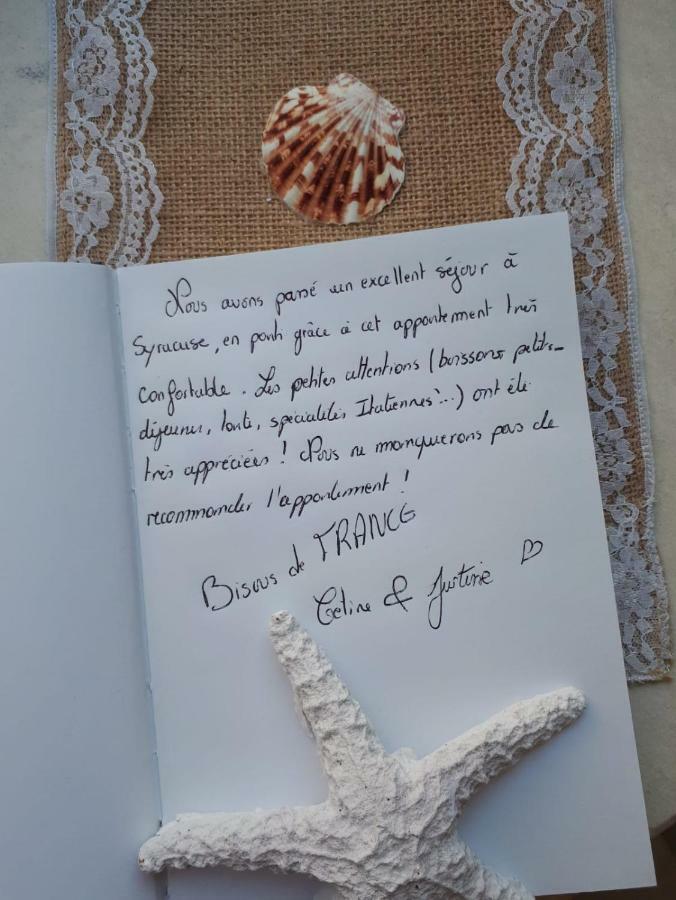 Nous avons passé un excellent séjour à
Syracuse, en partie grâce à cet appartement très
confortable. Les petites attentions (boissons, petits-
déjeuner, tarte, spécialités Italiennes...) ont été
très appréciées ! Nous ne manquerons pas de
recommander l'appartement !
Bisous de FRANCE
Céline & Justine ♡